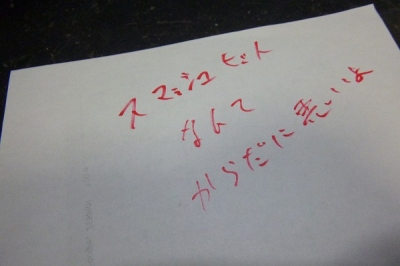 スマッシュヒット
なんて
からだに悪いよ